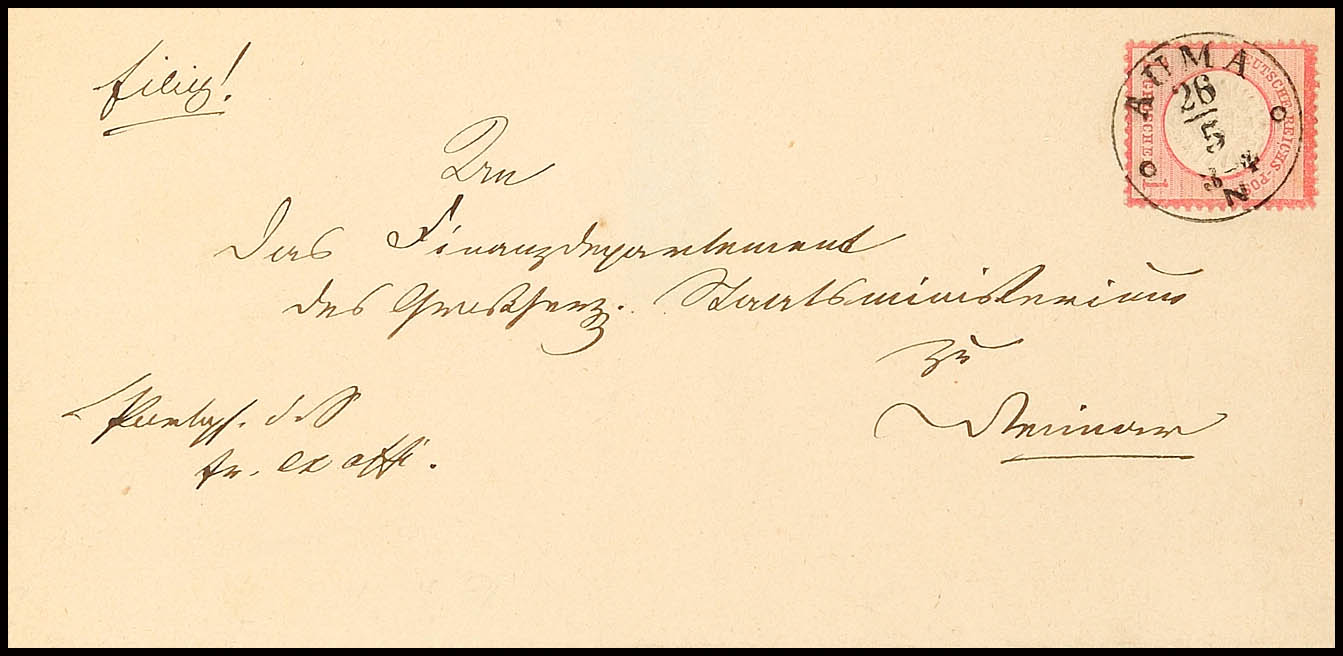 Eilig!
AUMA
26/5
3-4 N
DEUTSCHE REICHS-POST
GROSCHEN
1
An
Das Finanzdepartement
des Großherz. Staatsministeriums
zu
Weimar
fr. ex offi.